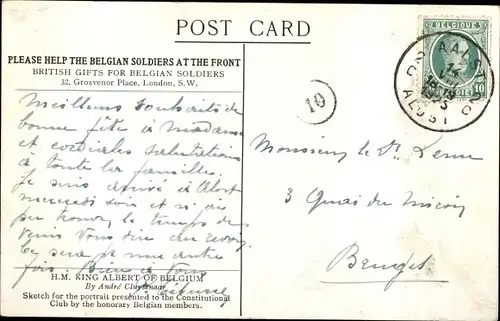 POST CARD
PLEASE HELP THE BELGIAN SOLDIERS AT THE FRONT
BRITISH GIFTS FOR BELGIAN SOLDIERS
32, Grosvenor Place, London, S.W.
Meilleurs souhaits de
bonne fête à Madame
et cordiales salutations
à toute la famille.
Je suis arrivé à Alost
mercredi soir et n'ai
pu trouver le temps de
venir vous dire au revoir
sera p une autre
fois. Bien à vous
H.M. KING ALBERT OF BELGIUM
By André Cluysenaar
Sketch for the portrait presented to the Constitutional
Club by the honorary Belgian members.
BELGIQUE
10
AALST
ALOST
10
Monsieur le Dr
3 Quai du Miroir
Bruges